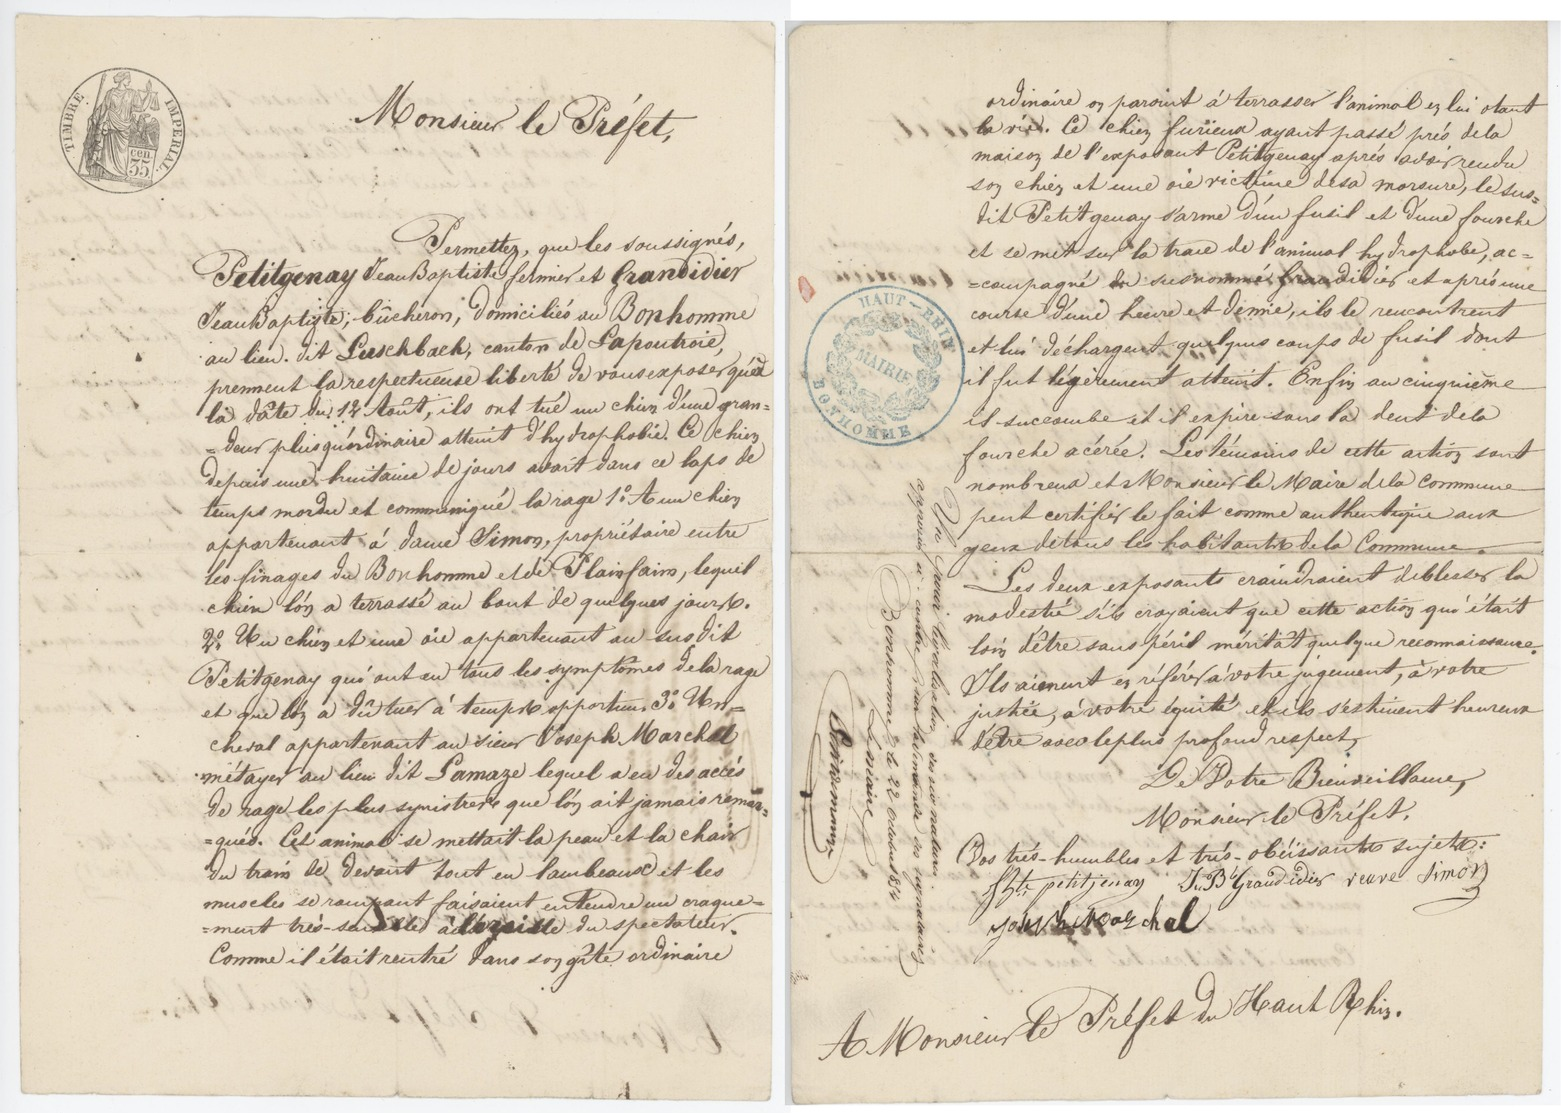 TIMBRE IMPERIAL.
35 cen.
Monsieur le Préfet,
Permettez, que les soussignés,
Petitgenay Jean Baptiste fermier et Grandidier
Jean Baptiste, bûcheron, domiciliés au Bonhomme
au lieu-dit Luschbach, canton de Lapoutroie,
prennent la respectueuse liberté de vous exposer qu'à
la dâte du 12 Août, ils ont tué un chien d'une gran=
=deur plus qu'ordinaire atteint d'hydrophobie. Ce chien
depuis une huitaine de jours avait dans ce laps de
temps mordu et communiqué la rage 1º A un chien
appartenant à dame Simon, propriétaire entre
les finages du Bonhomme et de Plainfaim, lequel
chien l'on a terrassé au bout de quelques jours.
2º Un chien et une oie appartenant au susdit
Petitgenay qui ont eu tous les symptômes de la rage
et que l'on a dû tuer à temps opportun. 3º Un=
cheval appartenant au sieur Joseph Marchal
métayer au lieu dit Lamaze lequel a eu des accès
de rage les plus synistres que l'on ait jamais remar=
=qués. Cet animal se mettait la peau et la chair
du train de devant tout en lambeaux et les
muscles se rompant faisaient entendre un craque=
=ment très-sensible à l'oreille du spectateur.
Comme il était rentré dans son gîte ordinaire
ordinaire on parvint à terrasser l'animal en lui otant
la vie. Ce chien furieux ayant passé près de la
maison de l'exposant Petitgenay après avoir rendu
son chien et une oie victime de sa morsure, le sus=
dit Petitgenay s'arme d'un fusil et d'une fourche
et se met sur la traie de l'animal hydrophobe, ac=
=compagné du susnommé Grandidier et après une
course d'une heure et demie, ils le rencontrent
et lui déchargent quelques coups de fusil dont
il fut légèrement atteint. Enfin au cinquième
il succombe et il expire sous la dent de la
fourche acérée. Les témoins de cette action sont
nombreux et Monsieur le Maire de la Commune
peut certifier le fait comme authentique aux
yeux de tous les habitants de la Commune.
Les deux exposants craindraient de blesser la
modestie s'ils croyaient que cette action qui était
loin d'être sans péril méritât quelque reconnaissance.
Ils aiment en référer à votre jugement, à votre
justice, à votre équité et ils s'estiment heureux
d'être avec le plus profond respect,
De Votre Bienveillance,
Monsieur le Préfet,
Vos très-humbles et très-obéissants sujets:
J Bte petitjenay J. Bte Grandidier veuve Simon
joseph Marchal
A Monsieur le Préfet du Haut Rhin.
HAUT-RHIN
MAIRIE
BONHOMME
Vu pour légalisation des signatures
apposées ci-contre
Bonhomme le 22 octobre
Le maire